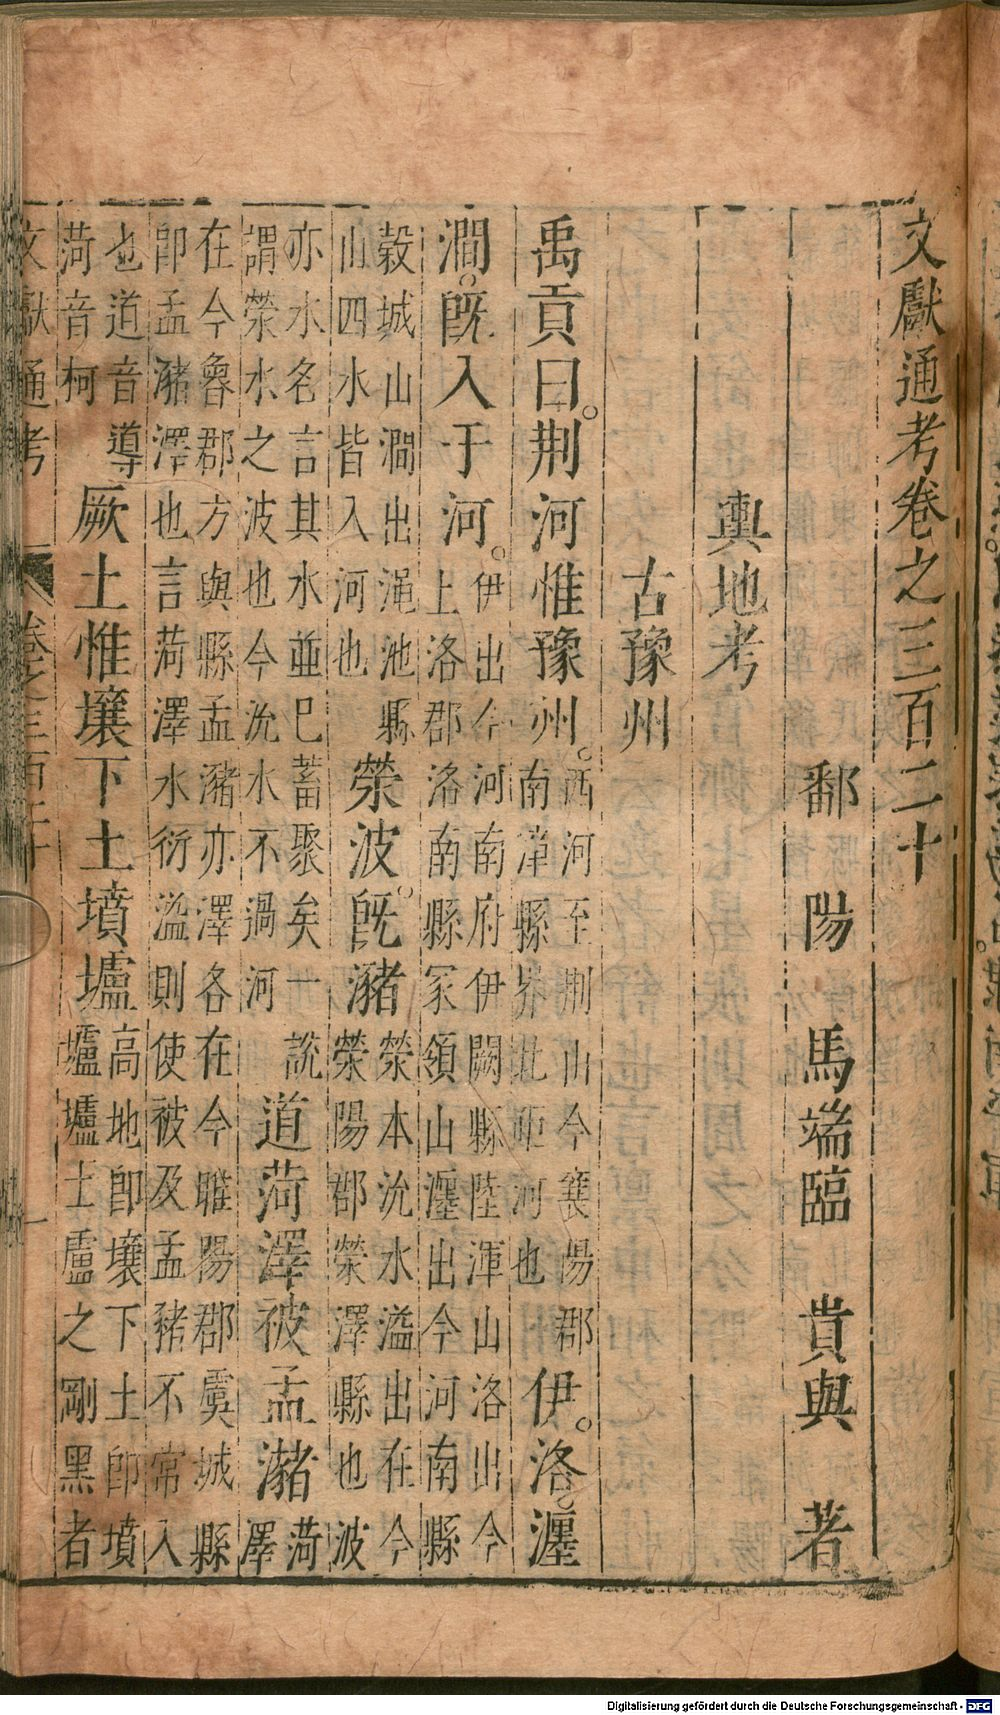 文獻通考卷之三百二十
鄱陽馬端臨貴與著
輿地考
古豫州
禹貢曰。荆河惟豫州。西河至荆山今襄陽郡南漳縣界北距河也伊。洛。瀍
澗。既入于河。伊出今河南府伊闕縣陸渾山洛出今上洛郡洛南縣冢領山瀍出今河南縣
榖城山澗出澠池縣山四水皆入河也滎波。既瀦滎本沇水溢出在今滎陽郡滎澤縣也波
亦水名言其水並巳蓄聚矣一說謂滎水之波也今沇水不過河道菏澤被孟瀦菏澤
在今魯郡方與縣孟瀦亦澤各在今睢陽郡虞城縣即孟瀦澤也言菏澤水衍溢則使被及孟豬不常入
也道音導菏音柯厥土惟壤下土墳壚高地即壤下土即墳壚壚土盧之剛黑者
文獻通考 卷之三百二十 一
Digitalisierung gefördert durch die Deutsche Forschungsgemeinschaft - DFG